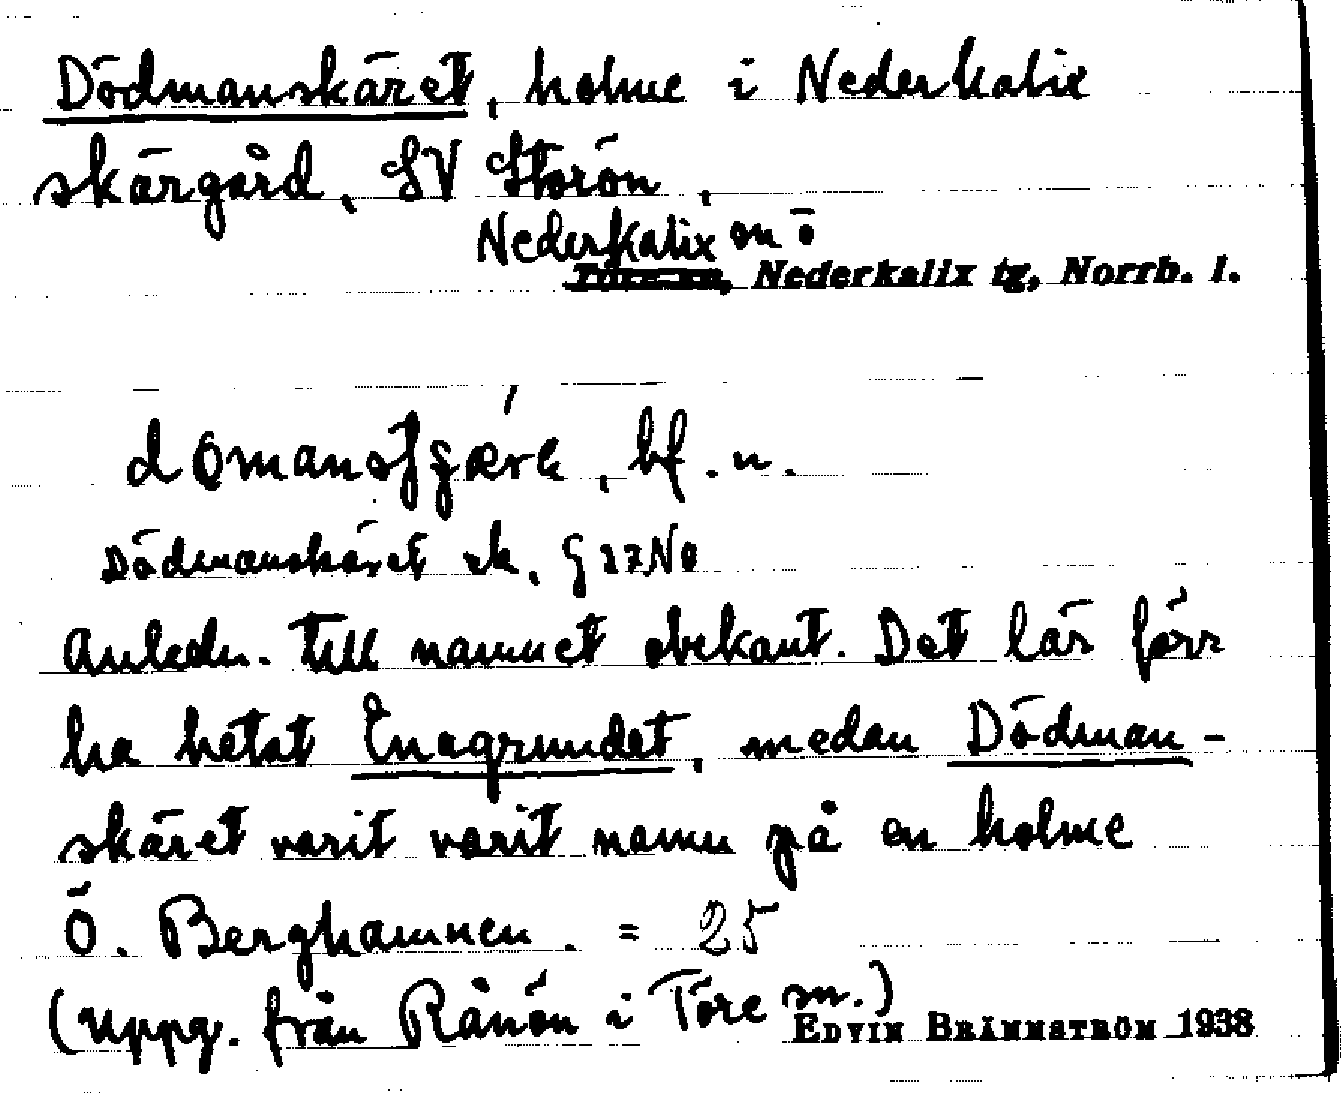 Dödmanskäret, holme i Nederkalix
skärgård, SV Storön.
Nederkalix sn ö
Nederkalix tg, Norrb. l.
bf. n.
Dödmanskäret ek. § 27 No
Anledn. till namnet obekant. Det lär förr
ha hetat Enagrundet, medan Dödman-
skäret varit varit namn på en holme
Ö. Berghamnen. = 25
(Uppg. från Rånön i Töre sn.)
EDVIN BRÄNNSTRÖM 1938